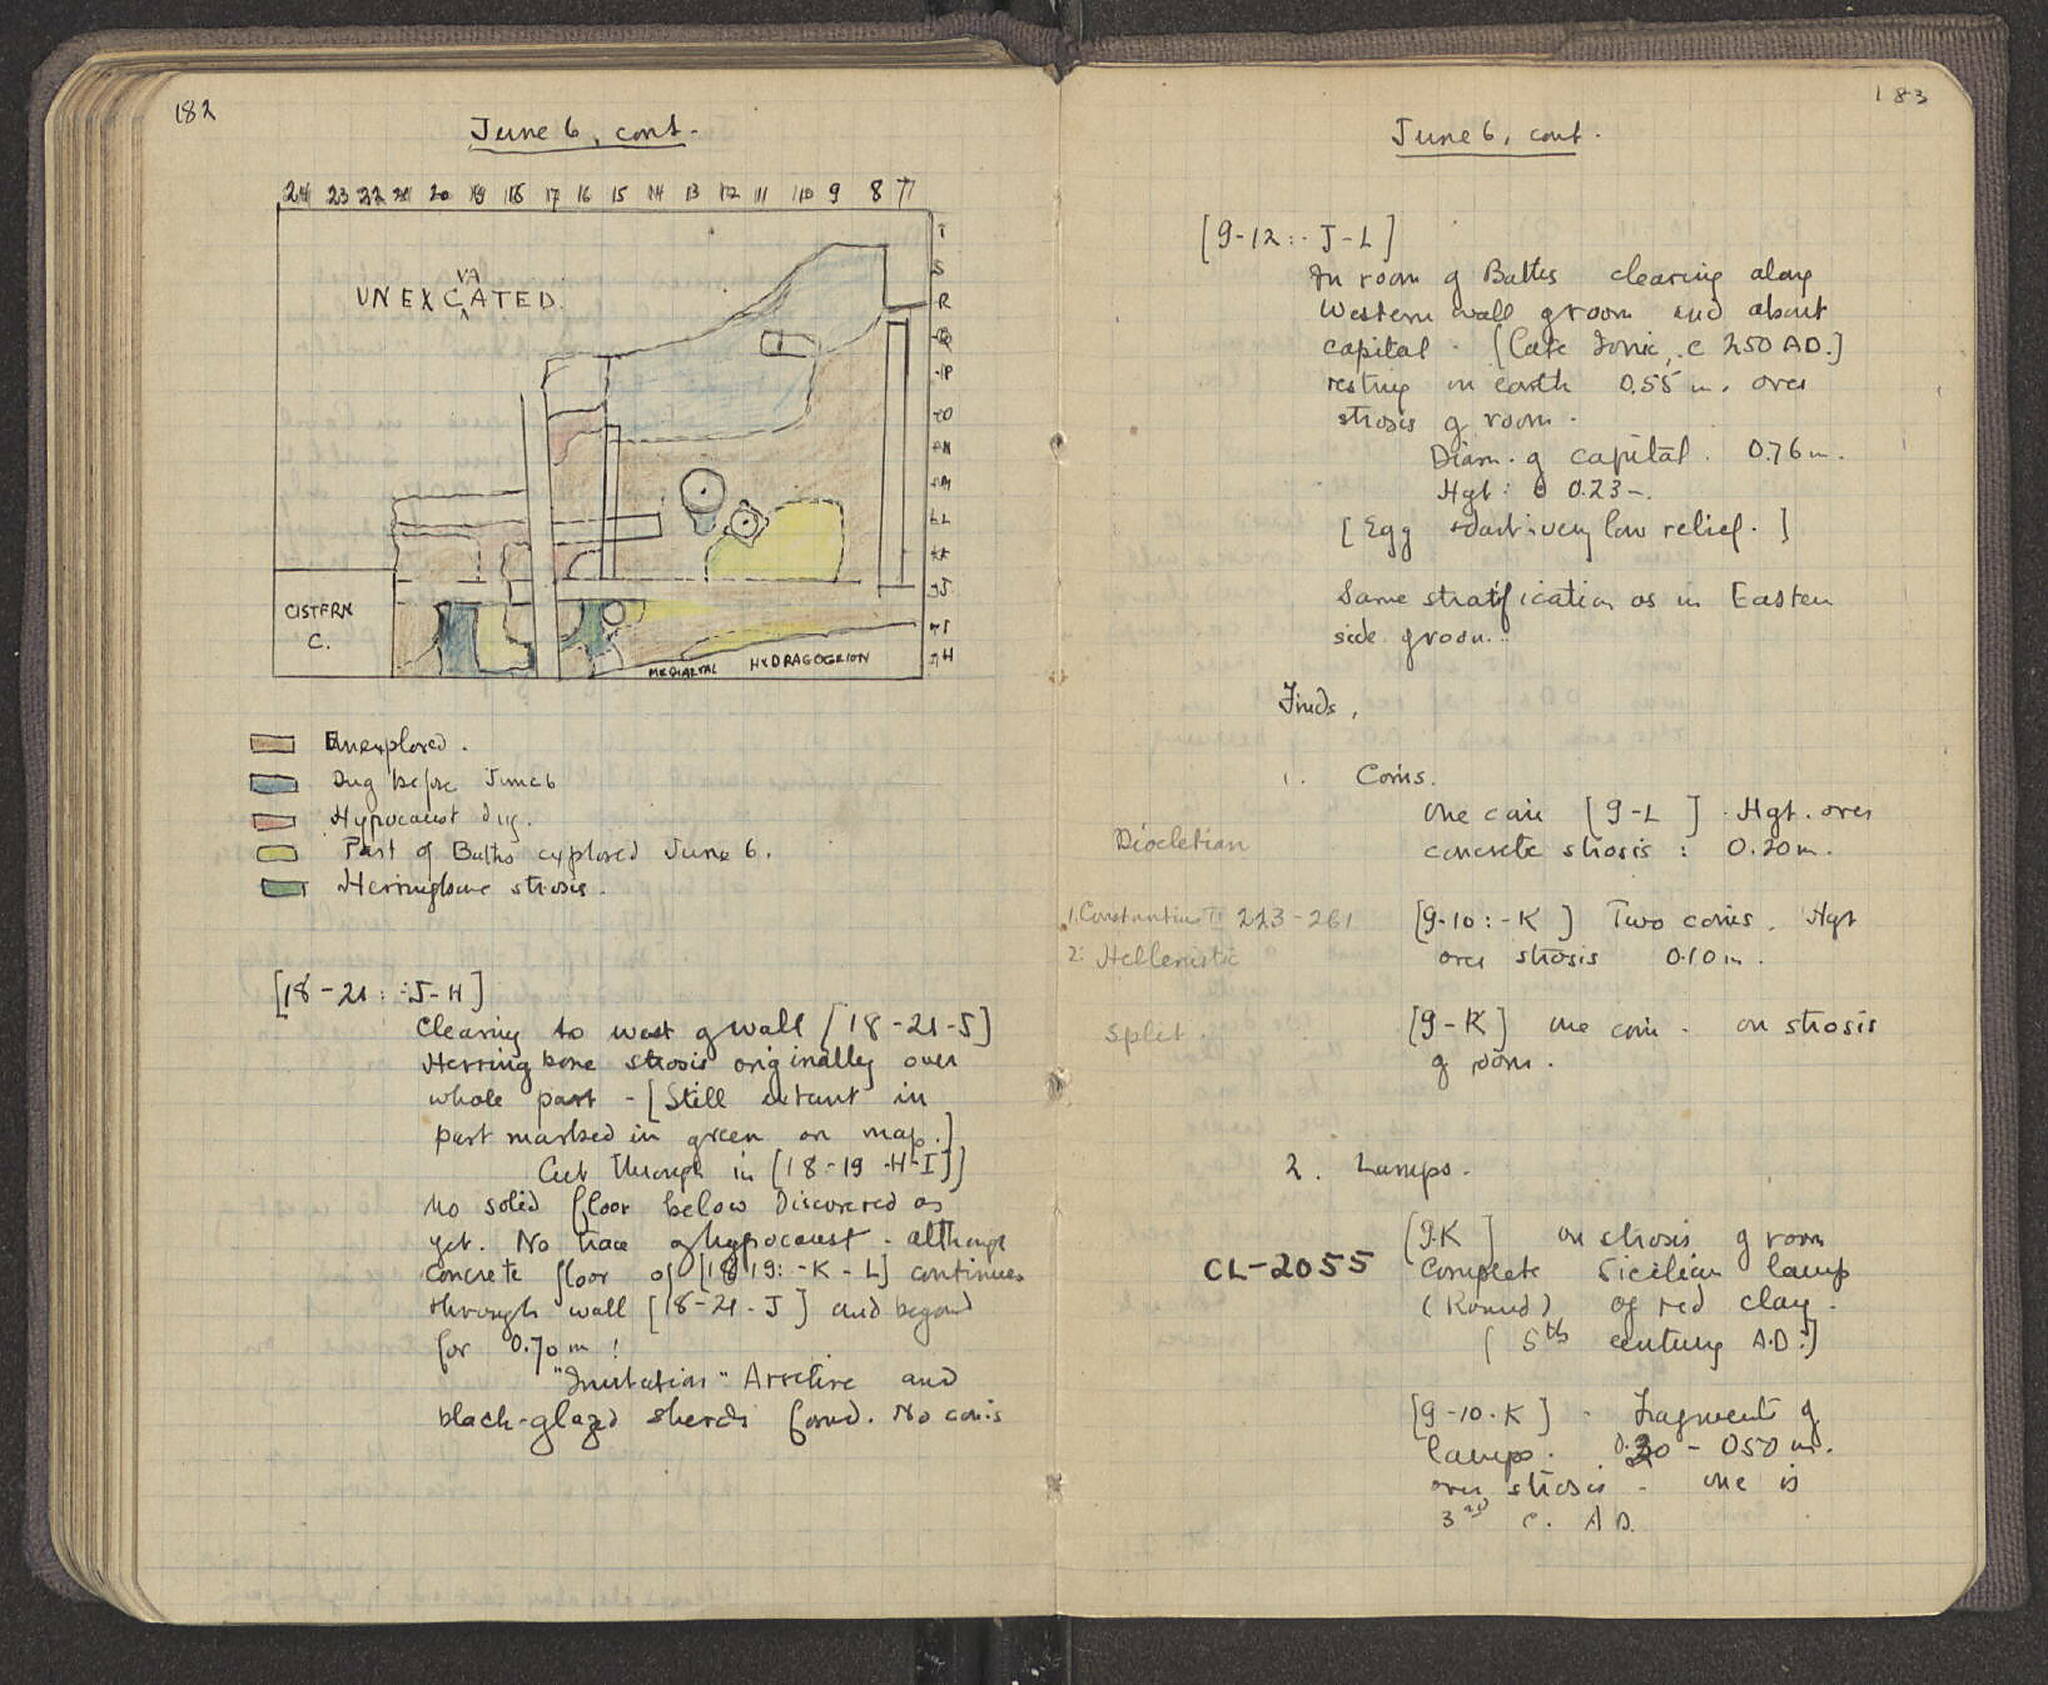 182
June 6, cont.
24 23 22 21 20 19 18 17 16 15 14 13 12 11 10 9 8 7
T
S
R
Q
P
O
N
M
L
K
J
I
H
VA
UNEXCATED.
CISTERN
C.
MEDIAEVAL HYDRAGOGEION
Unexplored.
Dug before June 6
Hypocaust dug.
Part of Baths explored June 6.
Herringbone strosis.
[18-21: -J-H]
Clearing to west of wall [18-21-J]
Herring bone strosis originally over
whole part - [Still extant in
part marked in green on map.]
Cut through in [18-19-H-I]
No solid floor below discovered as
yet. No trace of hypocaust - although
concrete floor of [18-19: -K-L] continues
through wall [18-21-J] and beyond
for 0.70 m!
"Imitation" Arretine and
black-glazed sherds found. No coins
183
June 6, cont.
[9-12: - J-L]
In room of Baths clearing along
Western wall of room and about
capital - [Late Ionic, c 250 AD.]
resting on earth 0.55 m. over
strosis of room.
Diam. of capital. 0.76 m.
Hgt: 0.23 -.
[Egg + dart - very low relief.]
Same stratification as in Eastern
side of room.
Finds,
1. Coins.
One coin [9-L] Hgt. over
Diocletian
concrete strosis: 0.20 m.
1. Constantius II 223-261
[9-10: -K] Two coins. Hgt
2: Hellenistic
over strosis 0.10 m.
Split.
[9-K] one coin - on strosis
of room.
2. Lamps.
[9-K] on strosis of room
CL-2055
Complete Sicilian lamp
(Round) of red clay.
[5th century A.D.]
[9-10-K] - Fragments of
lamps. 0.30 - 0.50 m.
over strosis - one is
3rd c. A D.